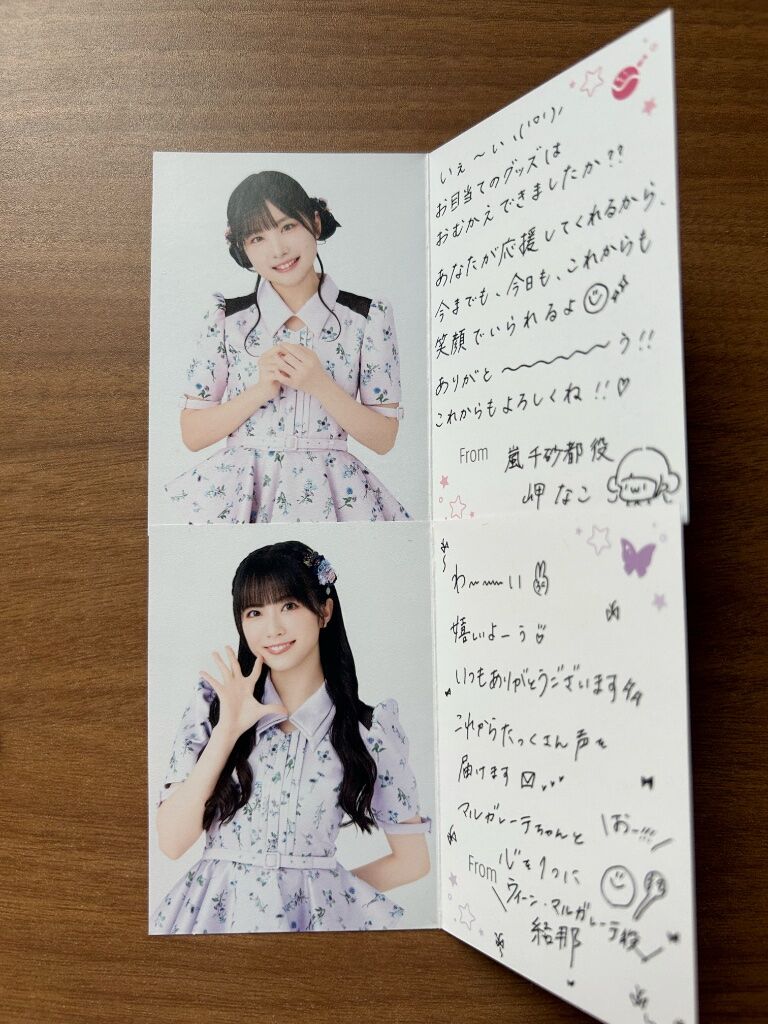 いぇ〜い ヽ('o')ﾉ
お目当てのグッズは
おむかえできましたか??
あなたが応援してくれるから、
今までも、今日も、これからも
笑顔でいられるよ
ありがと〜〜〜〜う!!
これからもよろしくね!!♡
From 嵐千砂都役
岬 なこ
わ〜〜い
嬉しいよーう
いつもありがとうございます
これからたっくさん声を
届けます
マルガレーテちゃんと
心を1つに
\おー!!!/
From
ウィーン・マルガレーテ役
結那